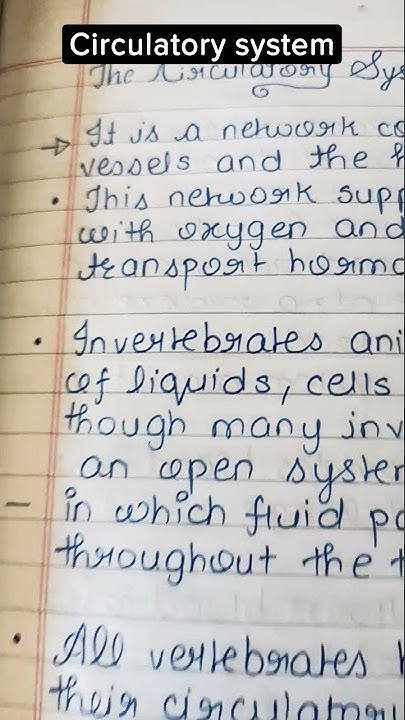 Circulatory system
The Circulatory Sys
→ It is a network co
vessels and the h
• This network supp
with oxygen and
transport hormo
• Invertebrates ani
of liquids, cells
though many inv
an open system
– in which fluid pa
throughout the t
• All vertebrates h
their circulatory